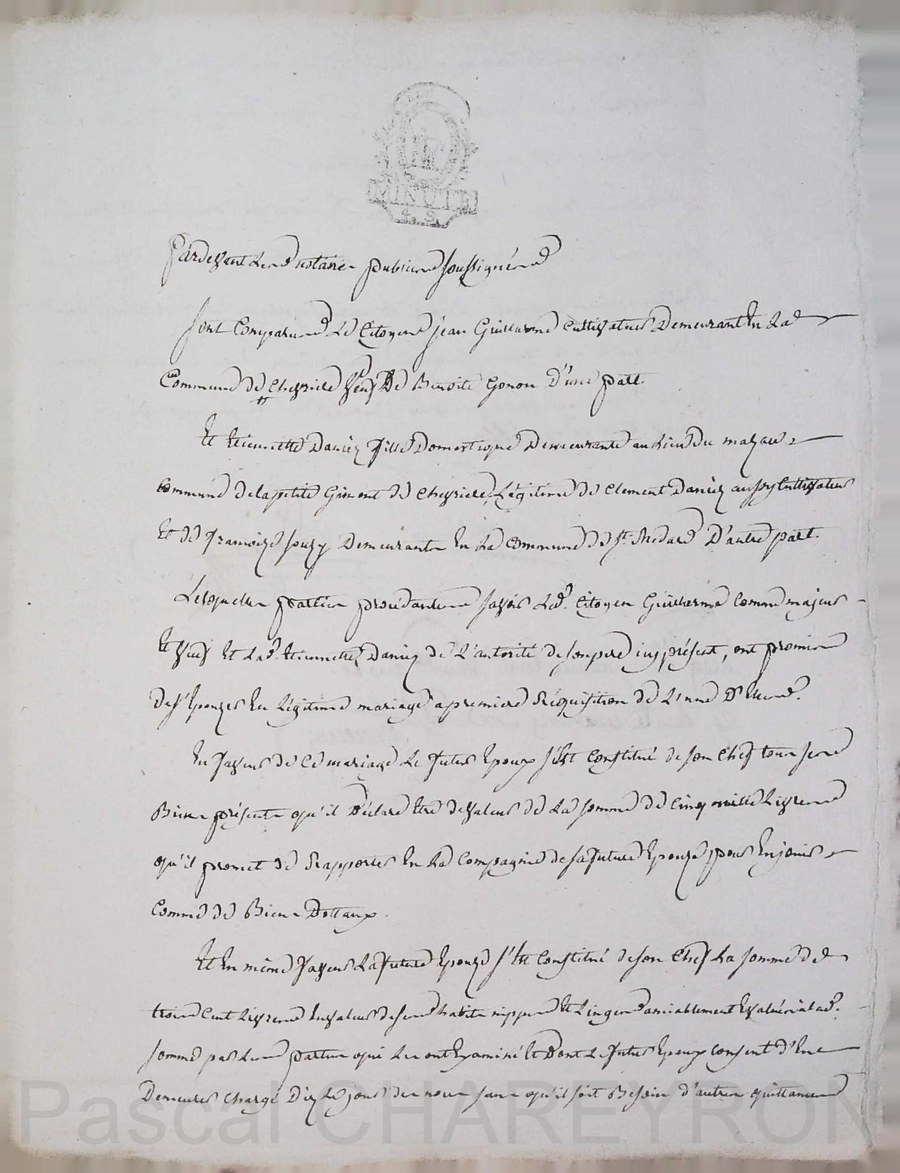 MINUTE
Pardevant les notaires publics soussignés
Sont Comparus Le Citoyen jean Guillerme Cultivateur Demeurant En La
Commune de Chevrieres Veuf De Benoite Gonon D'une part
Et Etiennette Daniez fille Domestique Demeurante au Lieu du mazau
Commune de la petite Gimont de Chevrieres, Légitime de Clement Daniez aussy Cultivateur
Et de françoize Souzy Demeurants En La Commune de St Medard D'autre part
Lesquelles parties procédantes savoir Led. Citoyen Guillerme Comme majeur
Et Veuf Et Lad. Etiennette Daniez de L'autorité de son pere icy présent, ont promis
de s'Epouzer En Légitime mariage a premiere Réquisition de L'une D'Elles.
En faveur de Ce mariage Le futur Epoux s'Est Constitué de son Chef tous ses
Biens présents qu'il Déclare Etre de valeur de La somme de Cinq mille Livres
qu'il promet de Rapporter En La Compagnie de sa future Epouze pour En jouir
Comme de Biens Dottaux.
Et En même faveur La future Epouze s'Est Constitué de son Chef La somme de
trois Cent Livres En valeur de ses habits nippes Et Linges amiablement Evalués à lad.
somme par Les parties qui Les ont Examiné Et Dont Le futur Epoux Consent d'En
Demeurer Chargé Dix le jour des noces sans qu'il soit Besoin d'autres quittances
Pascal CHAREYRON